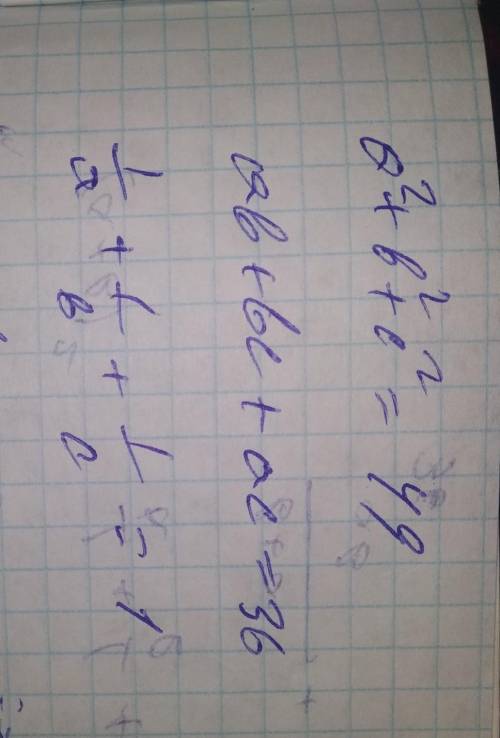 a² + b² + c² = 49
ab + bc + ac = 36
1/a + 1/b + 1/c = 1